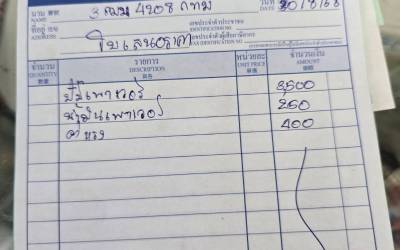 นาม 3 ฒฌ 4208 กทม วันที่ 20/8/68
ที่อยู่
ADDRESS
เลขประจำตัวประชาชน
IDENTIFICATION NO.
ใบเสนอราคา
เลขประจำตัวผู้เสียภาษีอากร
TAX IDENTIFICATION NO.
จำนวน รายการ หน่วยละ จำนวนเงิน
QUANTITY DESCRIPTION UNIT PRICE AMOUNT
數量
ปั๊มเพาเวอร์ 3,500
น้ำมันเพาเวอร์ 250
ค่าแรง 400